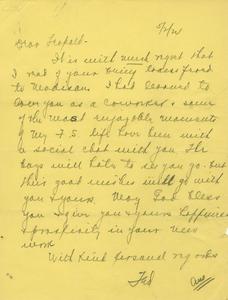 5/2/21
Dear Leopold-
It is with much regret that
I read of your being transferred
to Madison. I had learned to
love you as a coworker & some
of the most enjoyable moments
of my F.S. life have been with
a social chat with you. The
boys will hate to see you go. But
their good wishes will go with
you & yours. May God bless
you & give you & yours happiness
& prosperity in your new
work
With kind personal regards
Ted